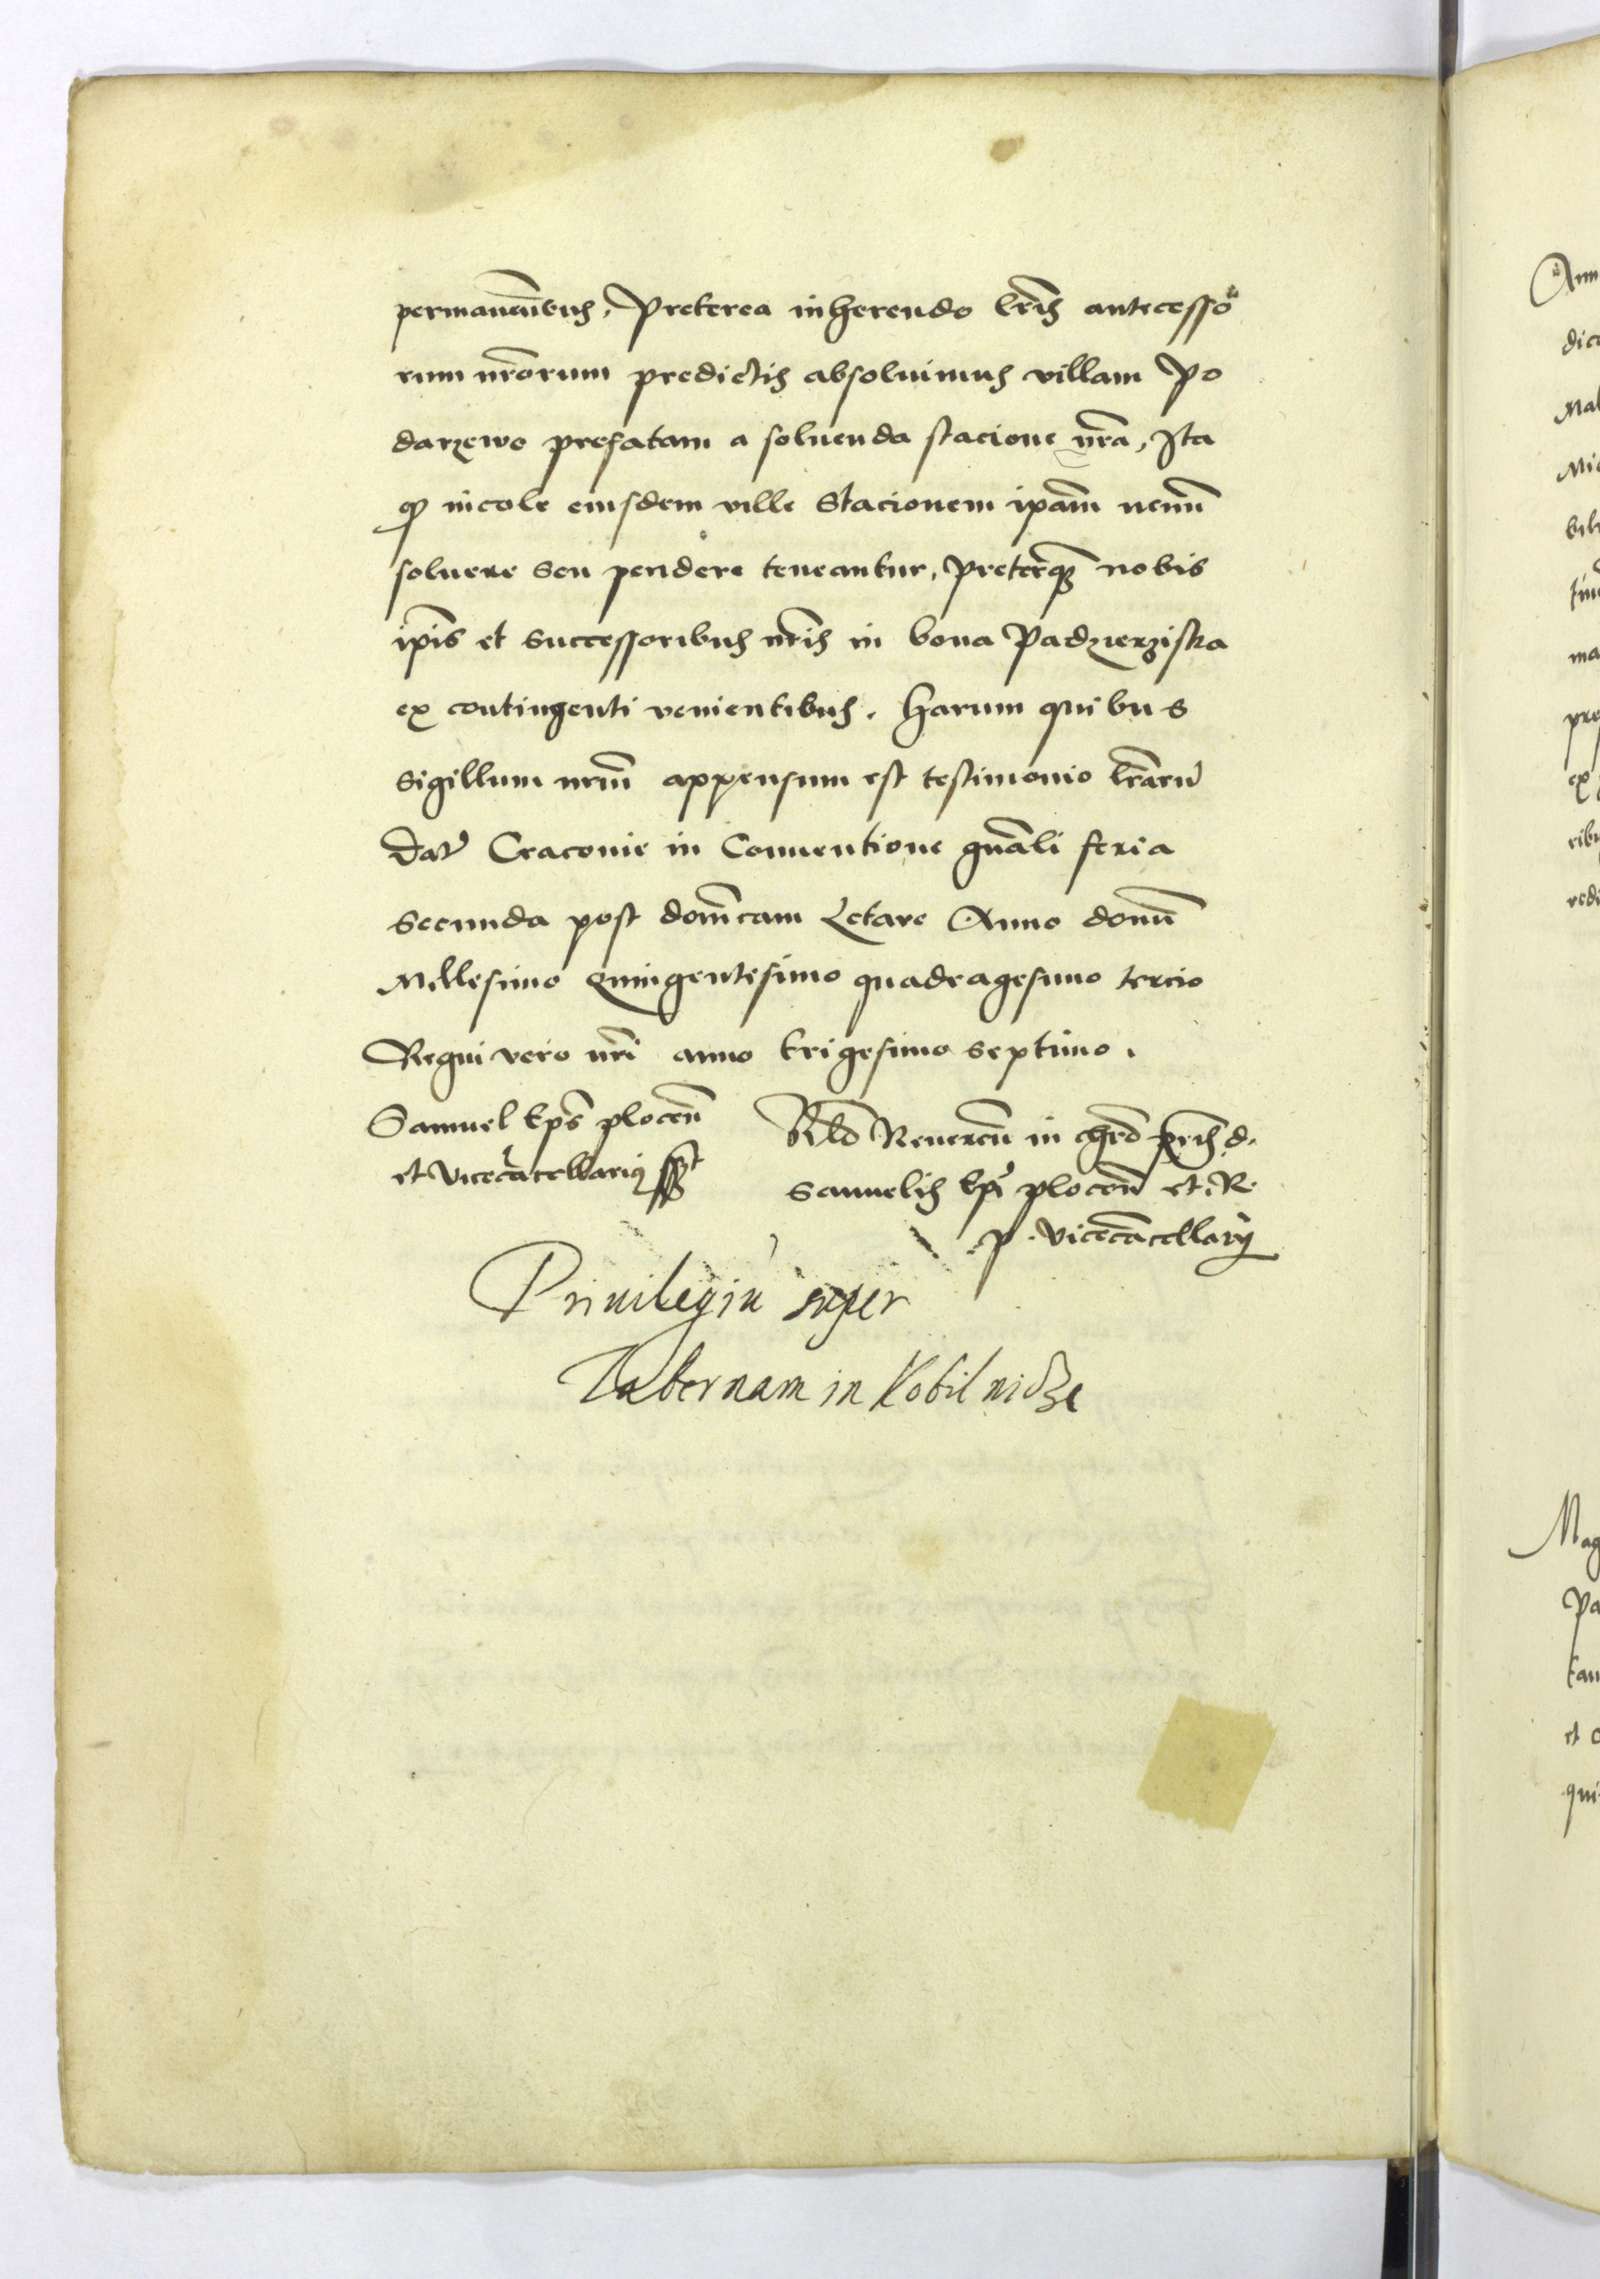 permanen̄tibus. Preterea inherendo lr̄is antecesso
rum nr̄orum predictis absoluimus villam Po
darzewo prefatam a soluenda stacione nr̄a, Ita
ꝙ incole eiusdem ville Stacionem ip̄am nemi͂
soluere seu pendere teneantur, preterꝗ nobis
ip̄is et successoribus nr̄is in bona Padzierziska
ex contingenti venientibus. Harum quibus
Sigillum nr̄m appensum est testimonio lr̄arū
Dat̄ Cracouie in Conuentione gn̄ali feria
Secunda post domīcam Letare Anno domī
Millesimo Quingentesimo quadragesimo tercio
Regni vero nr̄i anno trigesimo septimo.
Samuel Ep̄s plocen̄
et Vicecācellarius sst
Rlō Reueren̄ in chrō pr̄is d.
Samuelis Ep̄i plocen̄ et. R.
P. Vicecācellarij
Priuilegiū super
Tabernam in Kobilnidze
Ann
dict
Mal
Mic
bil
ma
pre
ex
ribu
redi
Mag
Pa
tan
et c
qui